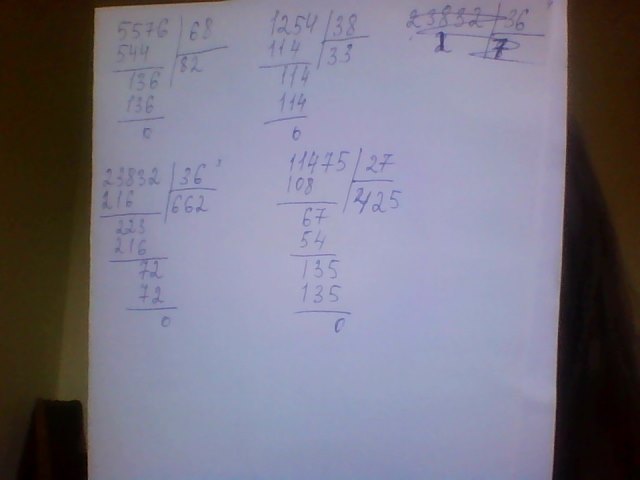 5576 68
544 82
136
136
0
1254 38
114 33
114
114
0
23832 36
1 7
23832 36
216 662
223
216
72
72
0
11475 27
108 425
67
54
135
135
0